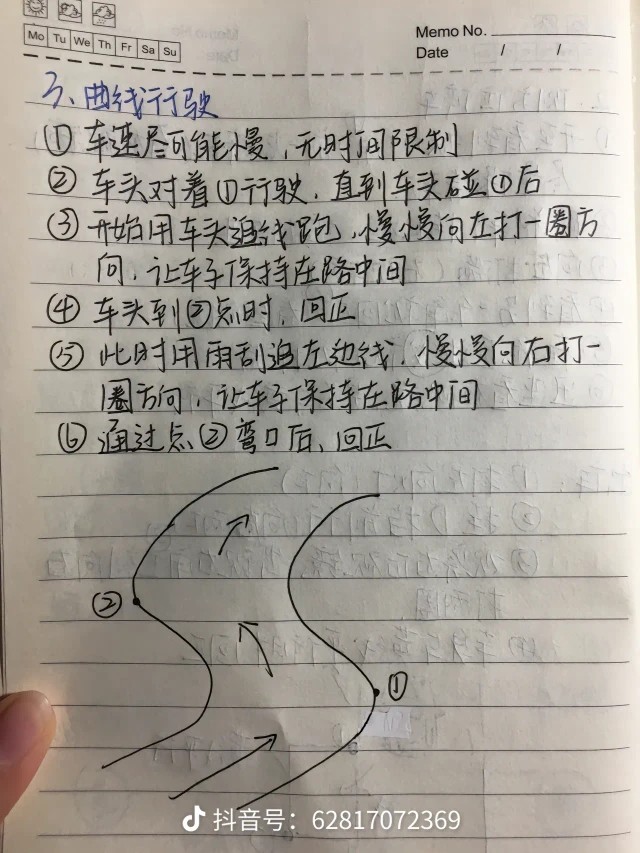 Mo Tu We Th Fr Sa Su
Memo No.
Date / /
3、曲线行驶
① 车速尽可能慢，无时间限制
② 车头对着①行驶，直到车头碰①后
③ 开始用车头追线跑，慢慢向左打一圈方
向，让车子保持在路中间
④ 车头到②点时，回正
⑤ 此时用雨刮追左边线，慢慢向右打一
圈方向，让车子保持在路中间
⑥ 通过点②弯口后，回正
②
①
抖音号：62817072369